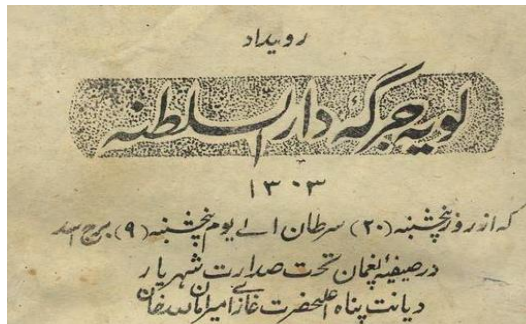 رویداد
لویه جرگهٔ دارالسلطنه
۱۳۰۳
که از روز پنچشنبه (۲۰) سرطان الے یوم پنچشنبه (۹) برج اسد
در صیفیهٔ پغمان تحت صدارت شهریار
دیانت پناه اعلیحضرت غازی امیر امان الله خان